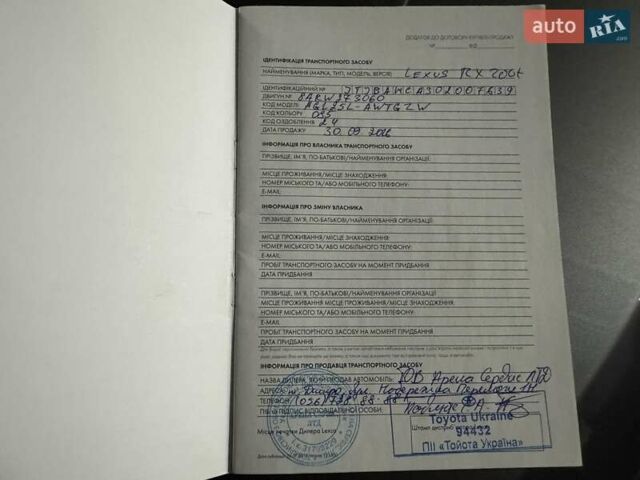 auto RIA .com
ДОДАТОК ДО ДОГОВОРУ КУПІВЛІ-ПРОДАЖУ
№ ВІД
ІДЕНТИФІКАЦІЯ ТРАНСПОРТНОГО ЗАСОБУ
НАЙМЕНУВАННЯ (МАРКА, ТИП, МОДЕЛЬ, ВЕРСІЯ) LEXUS RX 200t
ІДЕНТИФІКАЦІЙНИЙ №
ДВИГУН № 8ARW273060
КОД МОДЕЛІ AGL25L-AWTGZW
КОД КОЛЬОРУ 085
КОД ОЗДОБЛЕННЯ 24
ДАТА ПРОДАЖУ 30.09
ІНФОРМАЦІЯ ПРО ВЛАСНИКА ТРАНСПОРТНОГО ЗАСОБУ
ПРІЗВИЩЕ, ІМ'Я, ПО-БАТЬКОВІ/НАЙМЕНУВАННЯ ОРГАНІЗАЦІЇ:
МІСЦЕ ПРОЖИВАННЯ/МІСЦЕ ЗНАХОДЖЕННЯ
НОМЕР МІСЬКОГО ТА/АБО МОБІЛЬНОГО ТЕЛЕФОНУ:
E-MAIL:
ІНФОРМАЦІЯ ПРО ЗМІНУ ВЛАСНИКА
ПРІЗВИЩЕ, ІМ'Я, ПО-БАТЬКОВІ/НАЙМЕНУВАННЯ ОРГАНІЗАЦІЇ:
МІСЦЕ ПРОЖИВАННЯ/МІСЦЕ ЗНАХОДЖЕННЯ:
НОМЕР МІСЬКОГО ТА/АБО МОБІЛЬНОГО ТЕЛЕФОНУ:
E-MAIL:
ПРОБІГ ТРАНСПОРТНОГО ЗАСОБУ НА МОМЕНТ ПРИДБАННЯ
ДАТА ПРИДБАННЯ
ПРІЗВИЩЕ, ІМ'Я, ПО-БАТЬКОВІ/НАЙМЕНУВАННЯ ОРГАНІЗАЦІЇ:
МІСЦЕ ПРОЖИВАННЯ МІСЦЕ ПРОЖИВАННЯ/МІСЦЕ ЗНАХОДЖЕННЯ:
НОМЕР МІСЬКОГО ТА/АБО МОБІЛЬНОГО ТЕЛЕФОНУ:
E-MAIL
ПРОБІГ ТРАНСПОРТНОГО ЗАСОБУ НА МОМЕНТ ПРИДБАННЯ
ДАТА ПРИДБАННЯ
ІНФОРМАЦІЯ ПРО ПРОДАВЦЯ ТРАНСПОРТНОГО ЗАСОБУ
НАЗВА ДИЛЕРА, ЯКИЙ ПРОДАВ АВТОМОБІЛЬ: ТОВ Арена Сервіс ЛТД
АДРЕСА: м. Дніпро, вул. Набережна Перемоги
ТЕЛЕФОН: (056) 788-88-88
ПІБ ТА ПІДПИС ВІДПОВІДАЛЬНОЇ ОСОБИ
Місце печатки Дилера Lexus
ЛТД
Toyota Ukraine
94432
ПІІ «Тойота Україна»